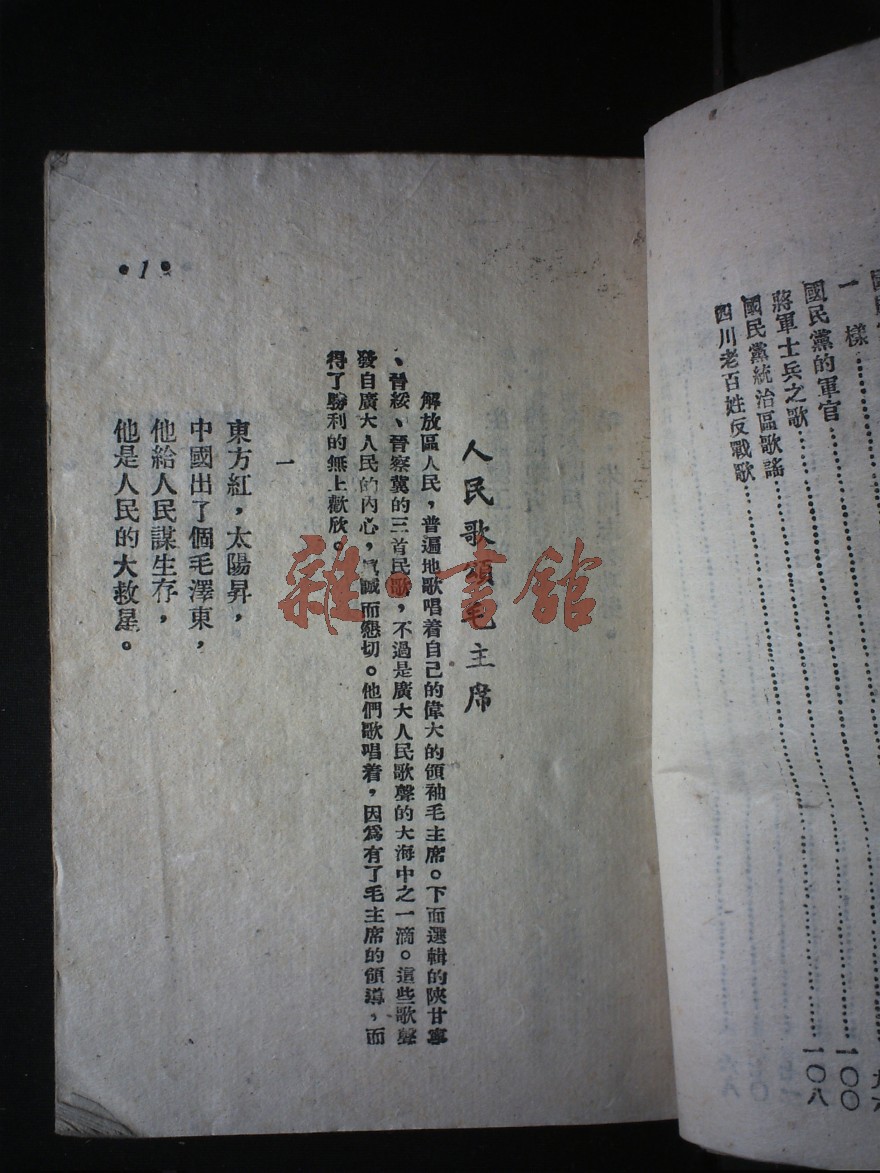 一樣……九六
國民黨的軍官……一〇〇
蔣軍士兵之歌……一〇八
國民黨統治區歌謠
四川老百姓反戰歌
人民歌頌毛主席
解放區人民，普遍地歌唱着自己的偉大的領袖毛主席。下面選輯的陝甘寧
、晉綏、晉察冀的三首民歌，不過是廣大人民歌聲的大海中之一滴。這些歌聲
發自廣大人民的內心，誠而懇切。他們歌唱着，因爲有了毛主席的領導，而
得了勝利的無上歡欣。
一
東方紅，太陽昇，
中國出了個毛澤東，
他給人民謀生存，
他是人民的大救星。
•1•
雜·書館